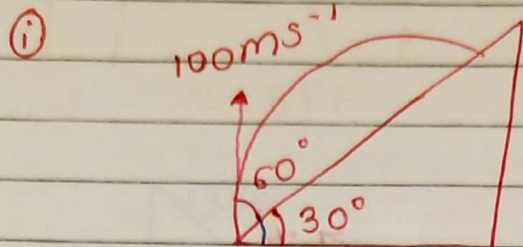 i
100ms⁻¹
60°
30°